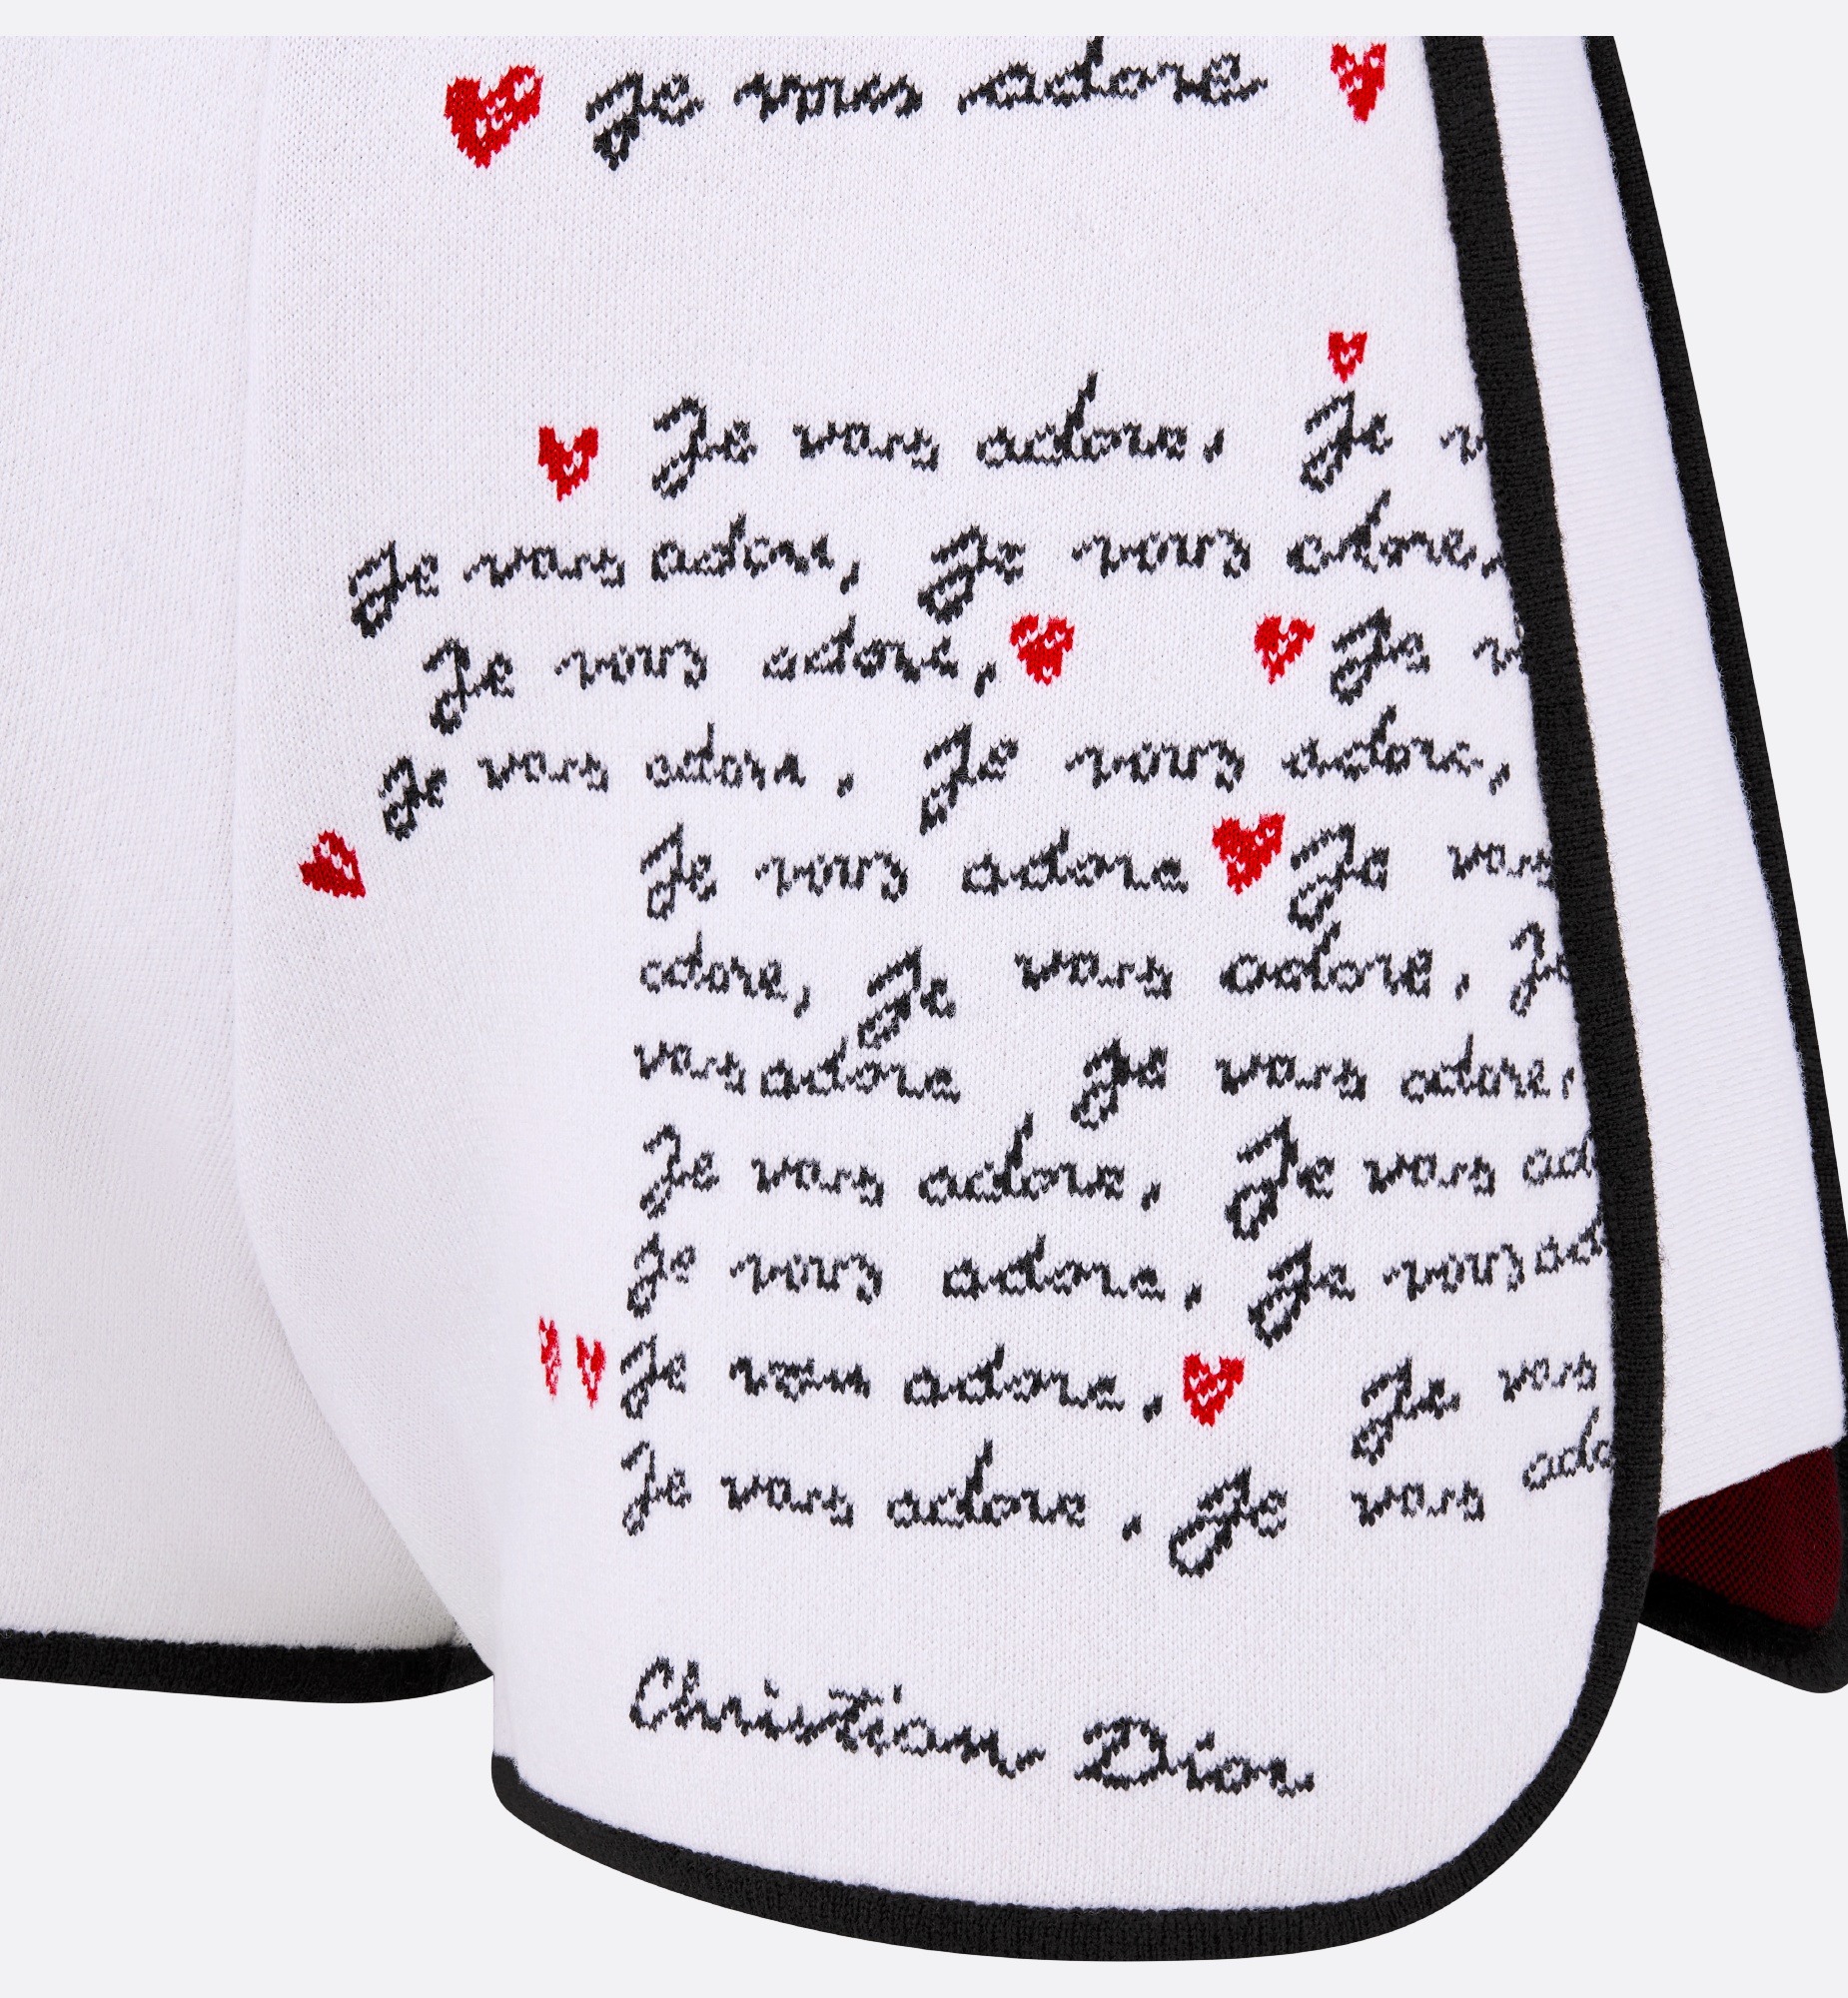 je vous adore
Je vous adore, Je
Je vous adore, Je vous adore,
Je vous adore, Je
Je vous adore, Je vous adore,
Je vous adore Je vous
adore, Je vous adore, Je
vous adore Je vous adore,
Je vous adore, Je vous ad
Je vous adore, Je vous ad
Je vous adore, Je vous
Je vous adore, Je vous ado
Christian Dior